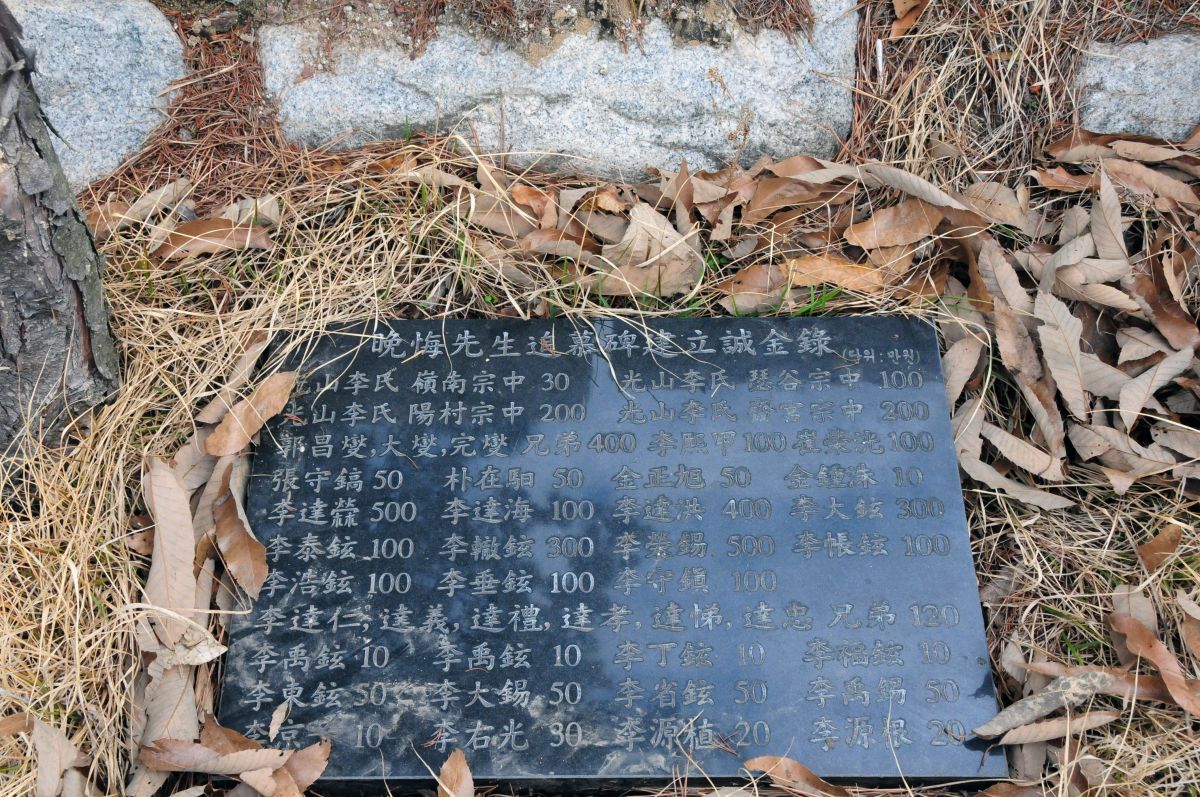 晩悔先生追慕碑建立誠金錄 (단위:만원)
光山李氏 嶺南宗中 30 光山李氏 瑟谷宗中 100
光山李氏 陽村宗中 200 光山李氏 齋宮宗中 200
郭昌燮,大燮,完燮 兄弟400 李熙甲100 崔榮洸100
張守鎬 50 朴在駉 50 金正旭 50 金鍾洙 10
李達 500 李達海 100 李達洪 400 李大鉉 300
李泰鉉 100 李轍鉉 300 李榮錫 500 李帳鉉 100
李浩鉉 100 李垂鉉 100 李守鎭 100
李達仁, 達義, 達禮, 達孝, 達悌, 達忠 兄弟 120
李禹鉉 10 李禹鉉 10 李丁鉉 10 李福鉉 10
李東鉉 50 李大錫 50 李省鉉 50 李禹錫 50
李京 10 李右光 30 李源植 20 李源根 20